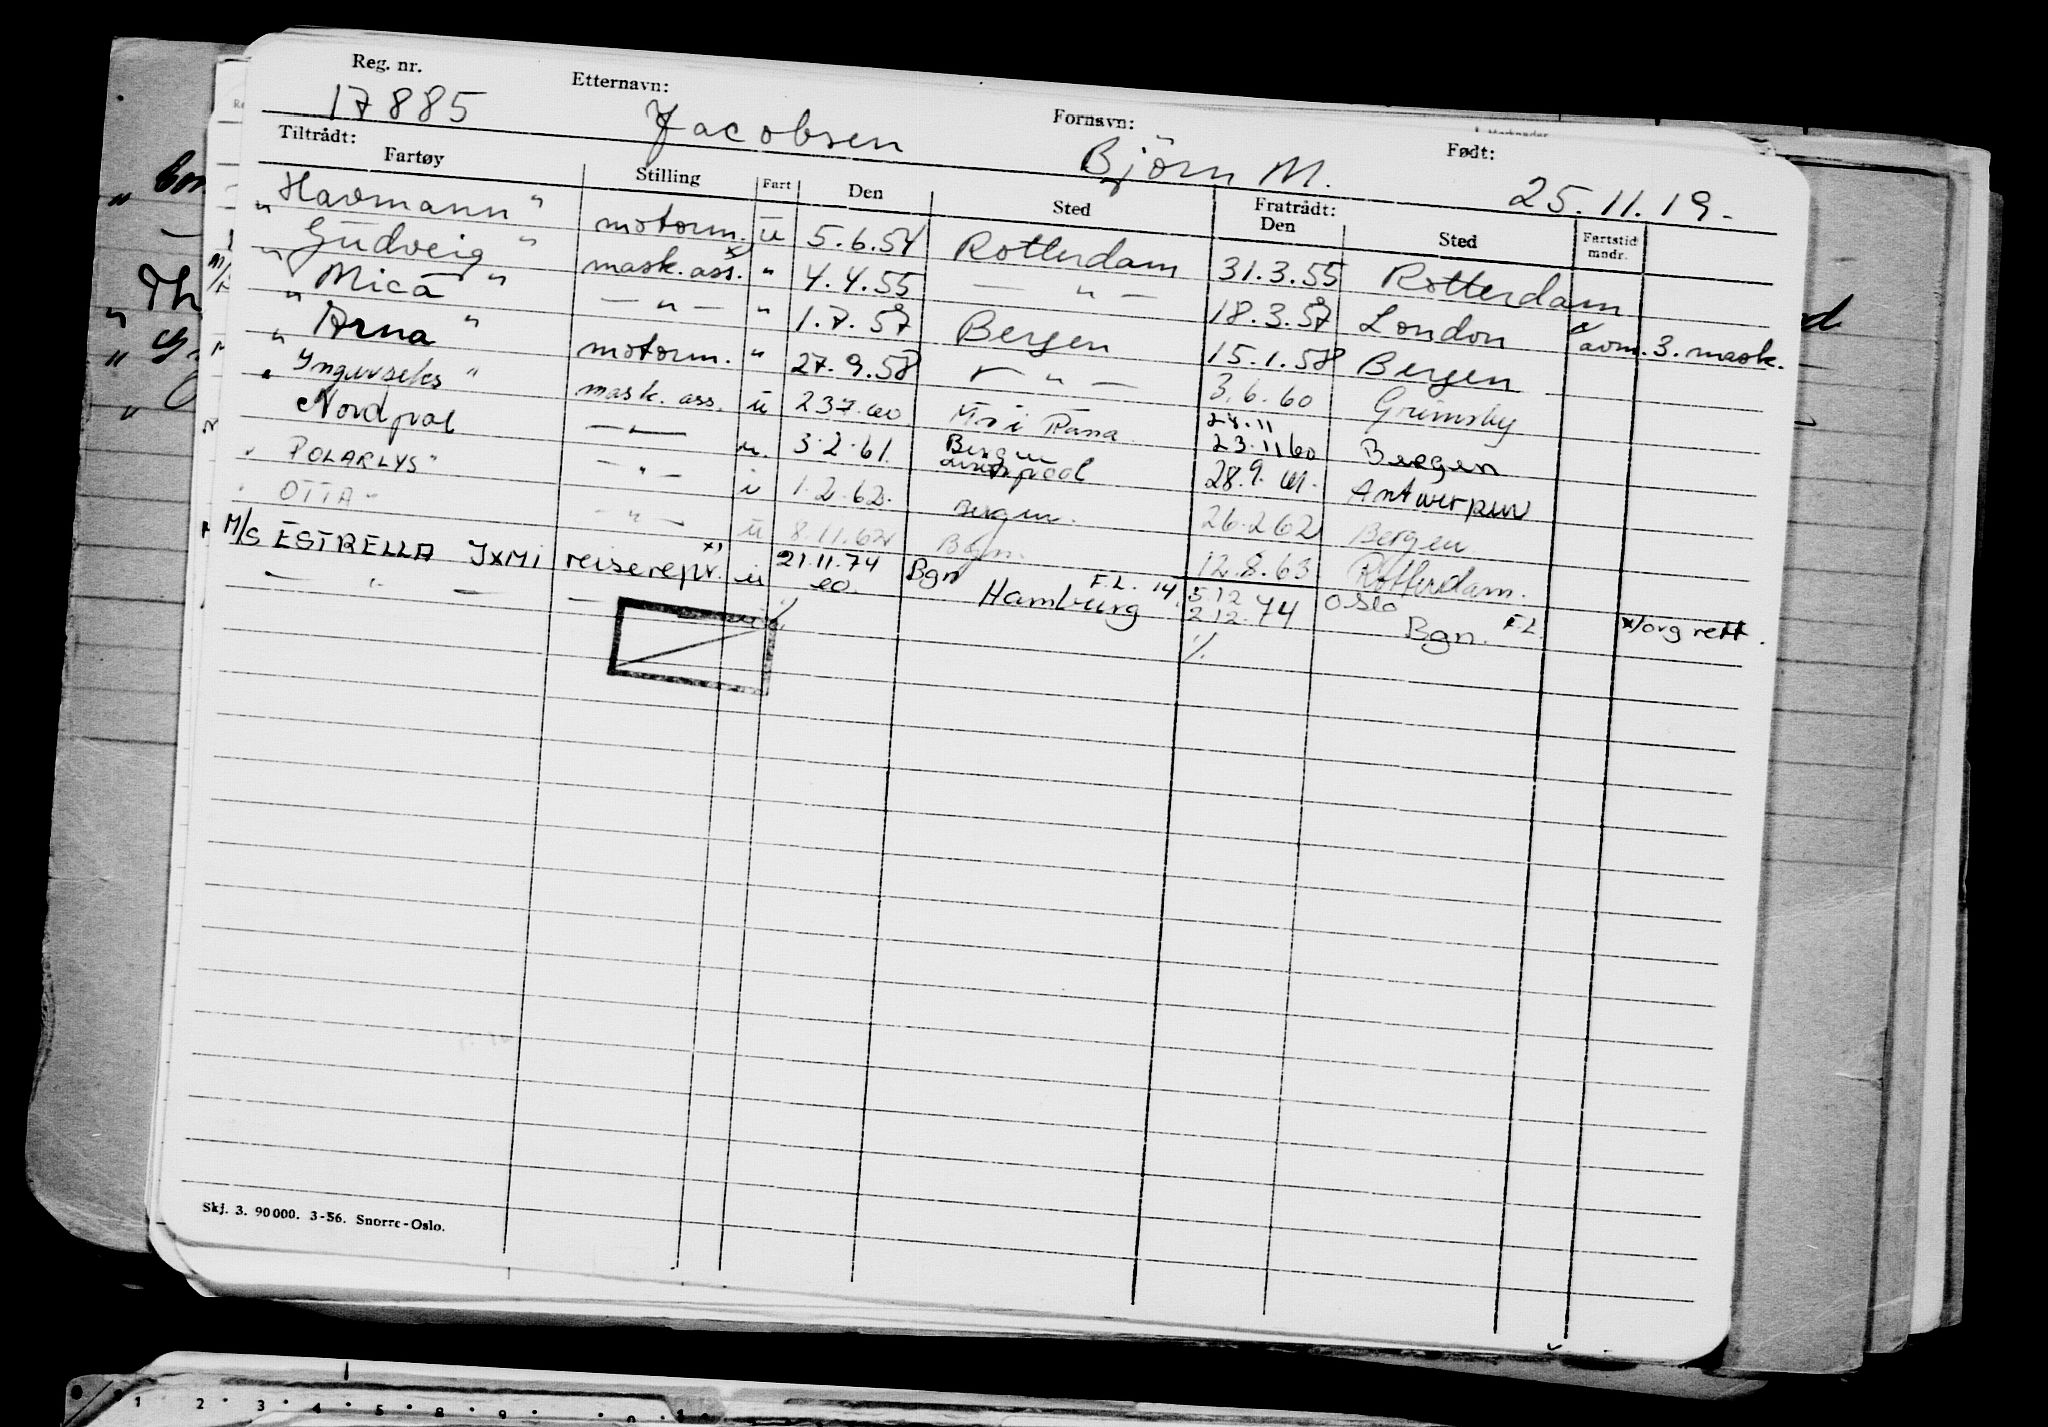 Reg. nr. Etternavn: Fornavn: Født:
17885 Jacobsen Björn M. 25.11.19.
Tiltrådt: Fratrådt:
Fartøy Stilling Fart Den Sted Den Sted Fartstid mndr.
"Havmann" motorm. ü 5.6.54 Rotterdam 31.3.55 Rotterdam
"Gudveig" mask. ass. x " 4.4.55 — " — 18.3.57 London x/ avm. 3. mask.
"Mica" — " — " 1.7.57 Bergen 15.1.58 Bergen
"Arna" motorm. " 27.9.58 — " — 3.6.60 Grimsby
" " mask. ass. ü 23.7.60 Mo i Rana 24.11 23.11 60 Bergen
Nordpol — " — u. 3.2.61. Bergen 28.9.61. Antwerpen
"POLARLYS" — " — i 1.2.62. Bergen. 26.2 62 Bergen
"OTTA" — " — ü 8.11.62 Bgn. 12.8.63 Rotterdam.
M/S ESTRELLA JXMI reiserepr. x) u 21.11.74 Bgn F.L. 14. 5.12 74 Oslo F.L. x/org rett.
— " — — Hamburg 2.12. 74 Bgn.
%
Skj. 3. 90000. 3-56. Snorre-Oslo.
1 2 3 4 5 8 9